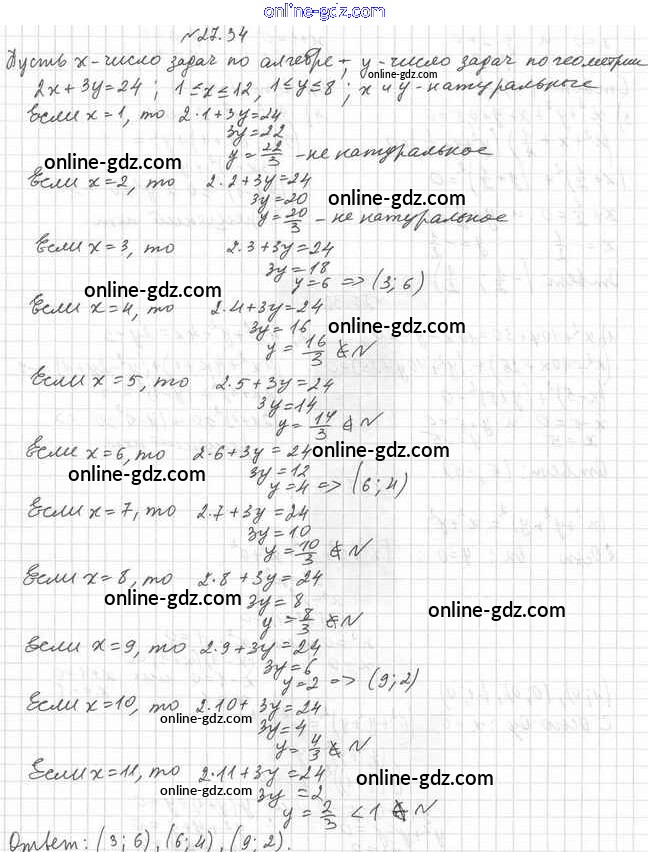 online-gdz.com
№27.34
Пусть x - число задач по алгебре, y - число задач по геометрии
online-gdz.com
2x+3y=24 ; 1≤x≤12, 1≤y≤8 ; x и y - натуральные
Если x=1, то 2·1+3y=24
3y=22
y=22/3 - не натуральное
online-gdz.com
Если x=2, то 2·2+3y=24
3y=20
online-gdz.com
y=20/3 - не натуральное
Если x=3, то 2·3+3y=24
3y=18
y=6 => (3;6)
online-gdz.com
Если x=4, то 2·4+3y=24
3y=16
online-gdz.com
y=16/3 ∉ N
Если x=5, то 2·5+3y=24
3y=14
y=14/3 ∉ N
Если x=6, то 2·6+3y=24
online-gdz.com
3y=12
online-gdz.com
y=4 => (6;4)
Если x=7, то 2·7+3y=24
3y=10
y=10/3 ∉ N
Если x=8, то 2·8+3y=24
online-gdz.com
3y=8
online-gdz.com
y=8/3 ∉ N
Если x=9, то 2·9+3y=24
3y=6
y=2 => (9;2)
Если x=10, то 2·10+3y=24
online-gdz.com
3y=4
y=4/3 ∉ N
Если x=11, то 2·11+3y=24
online-gdz.com
3y=2
y=2/3 <1 ∉ N
online-gdz.com
Ответ: (3;6), (6;4), (9;2).